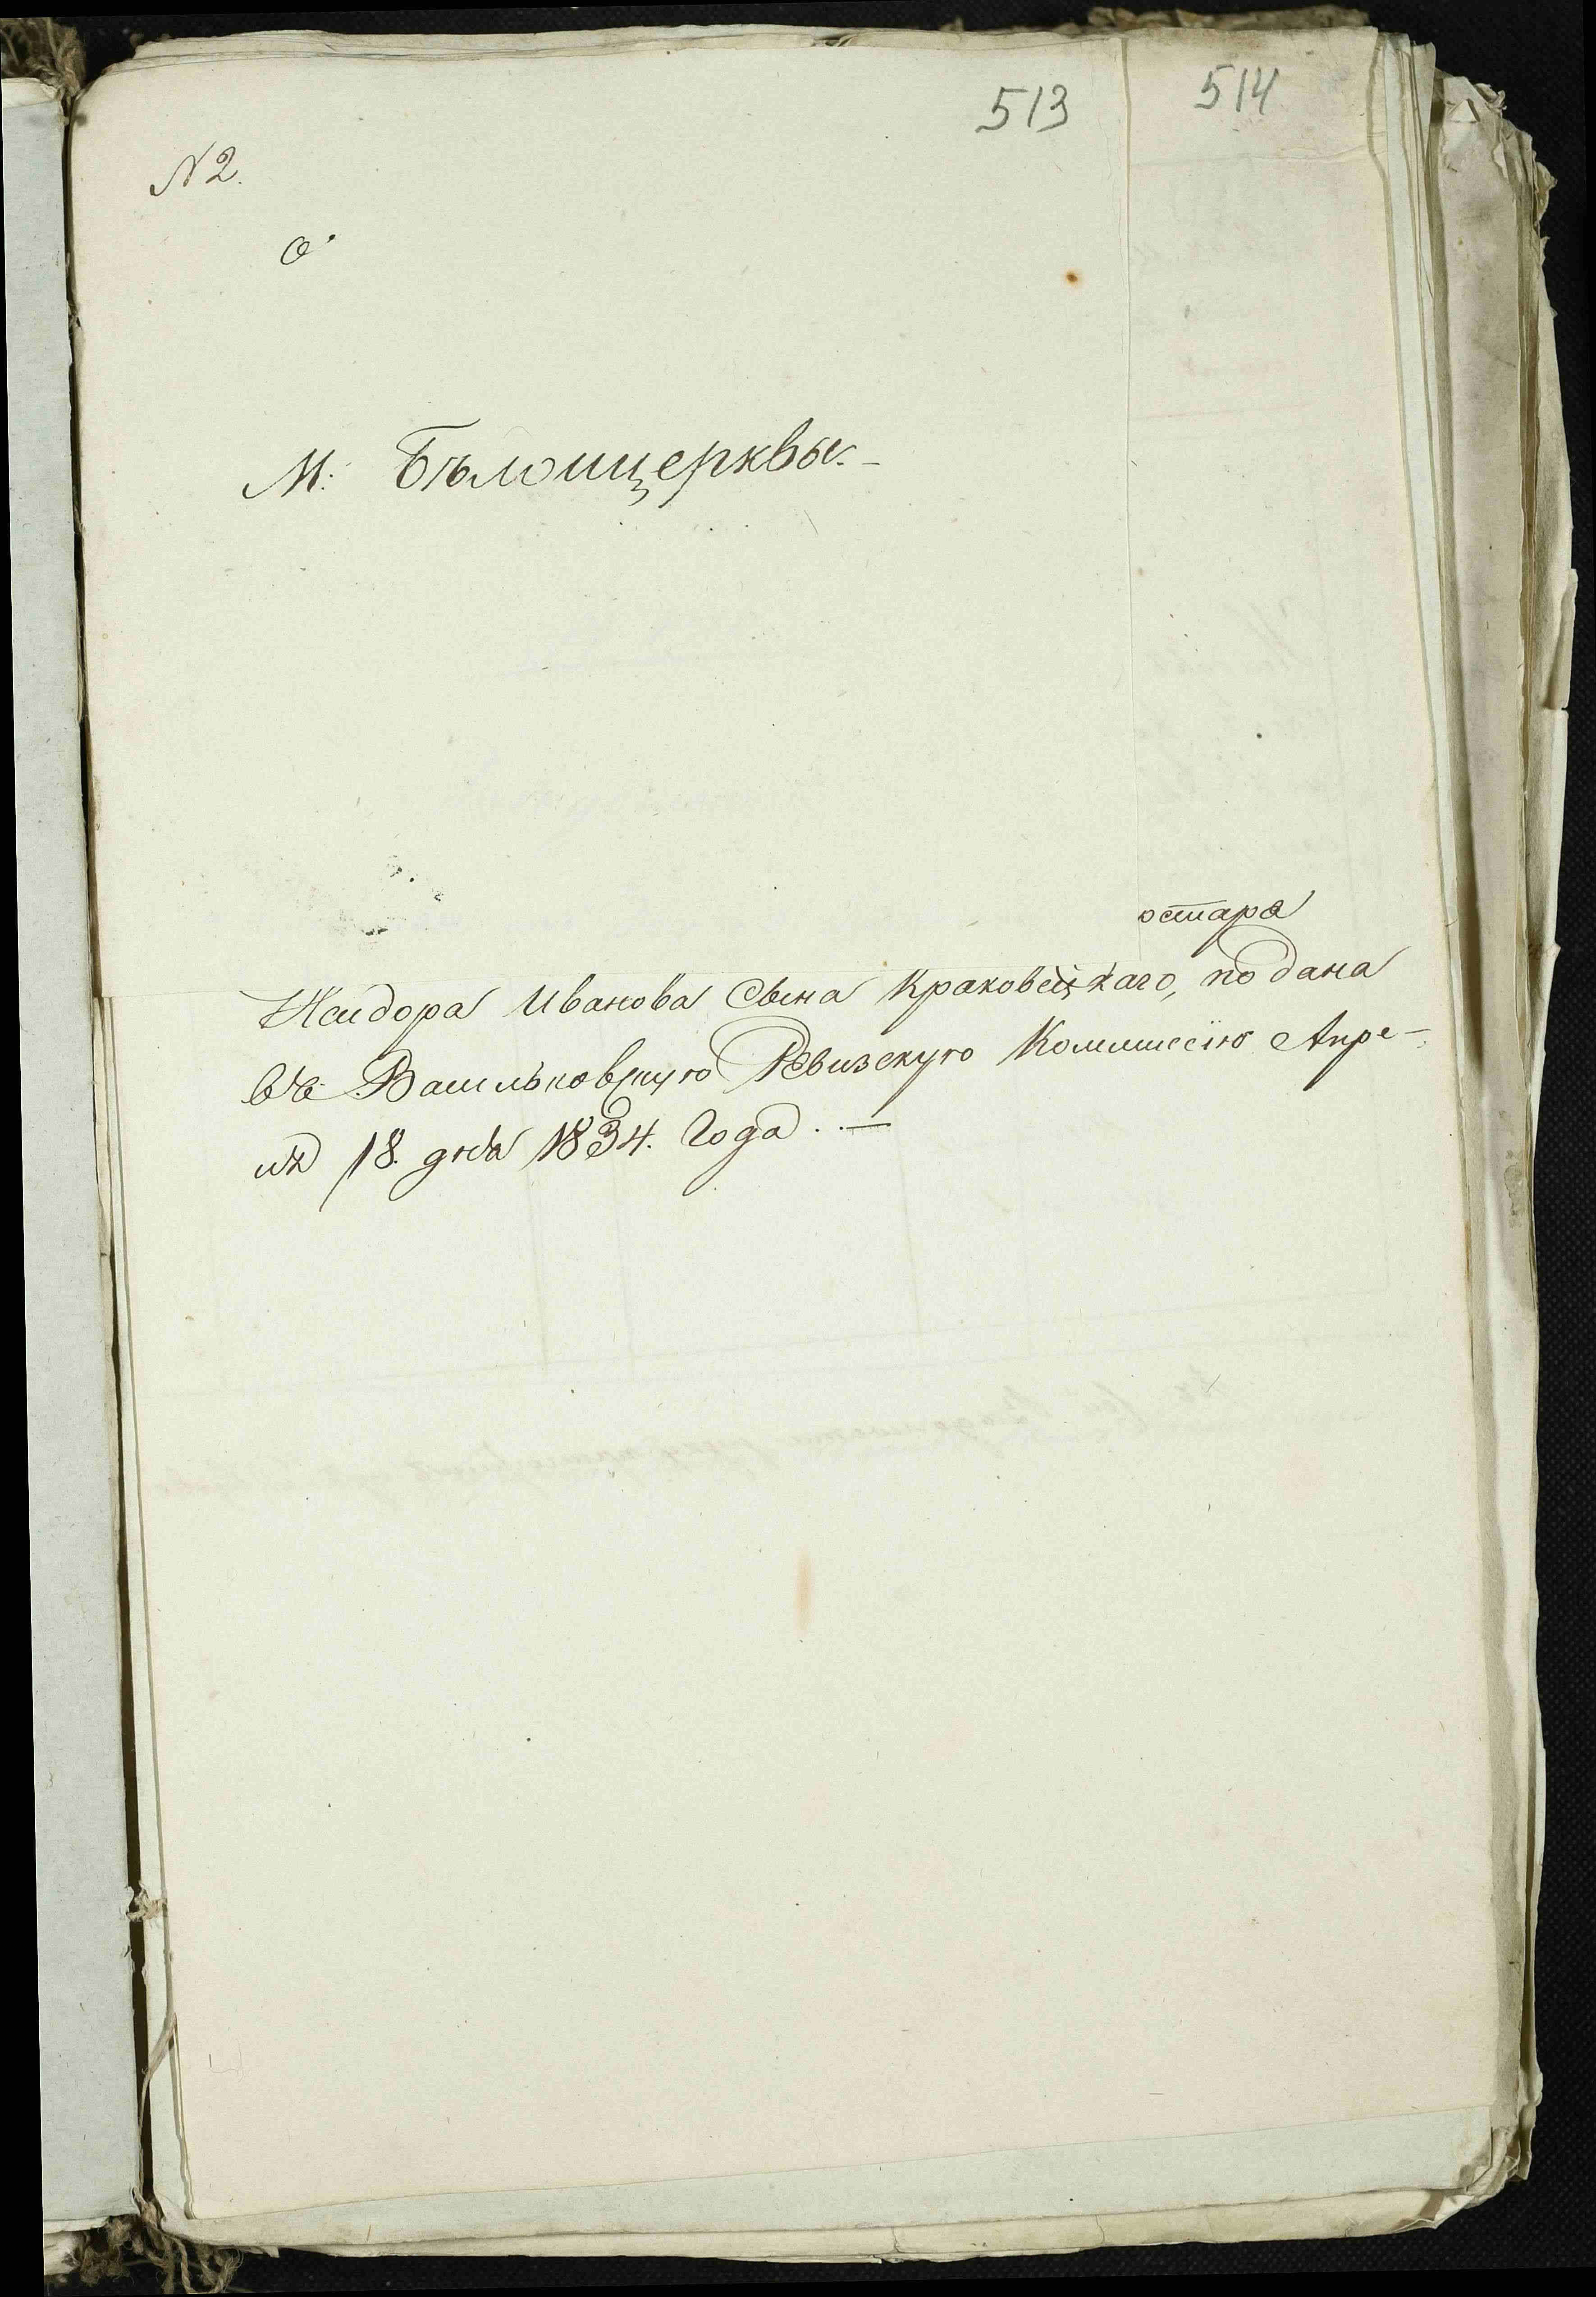 513
514
N 2.
О.
М: Бѣлоицерквы.-
остара
Исидора Иванова Сына Краковецкаго, подана
въ Васильковскую Ревизскую Коммиссію Апре-
ля 18. дня 1834. Года . . —